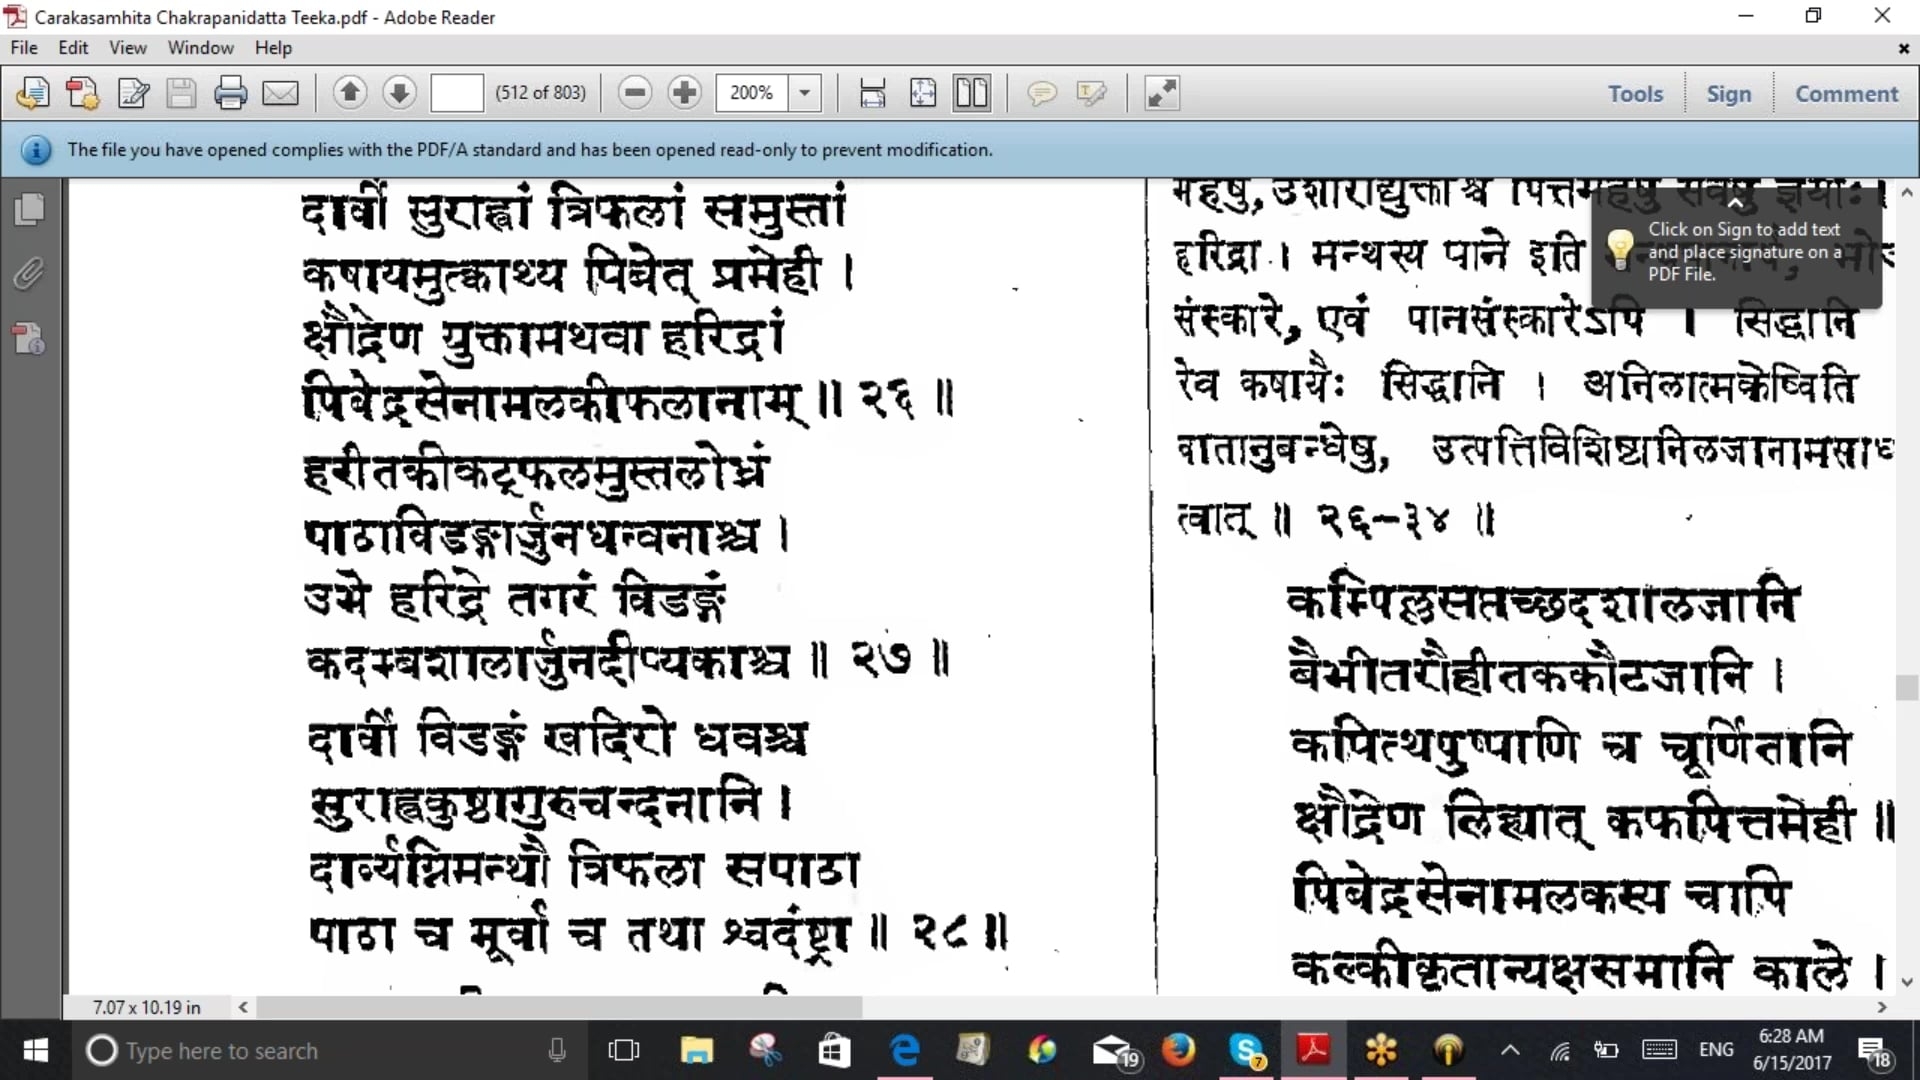 Carakasamhita Chakrapanidatta Teeka.pdf - Adobe Reader
File Edit View Window Help
(512 of 803) 200% Tools Sign Comment
The file you have opened complies with the PDF/A standard and has been opened read-only to prevent modification.
दार्वीं सुराह्वां त्रिफलां समुस्तां
कषायमुत्क्वाथ्य पिबेत् प्रमेही ।
क्षौद्रेण युक्तामथवा हरिद्रां
पिबेद्रसेनामलकीफलानाम् ॥ २६ ॥
हरीतकीकट्फलमुस्तलोध्रं
पाठाविडङ्गार्जुनधन्वनाश्च ।
उभे हरिद्रे तगरं विडङ्गं
कदम्बशालार्जुनदीप्यकाश्च ॥ २७ ॥
दार्वीं विडङ्गं खदिरो धवश्च
सुराह्वकुष्ठागुरुचन्दनानि ।
दार्व्यग्निमन्थौ त्रिफला सपाठा
पाठा च मूर्वा च तथा श्वदंष्ट्रा ॥ २८ ॥
हरिद्रा । मन्थस्य पाने इति
संस्कारे, एवं पानसंस्कारेऽपि । सिद्धानि
रेव कषायैः सिद्धानि । अनिलात्मकेष्विति
वातानुबन्धेषु, उत्पत्तिविशिष्टानिलजानामसाध
त्वात् ॥ २६-३४ ॥
कम्पिल्लसप्तच्छदशालजानि
बैभीतरौहीतककौटजानि ।
कपित्थपुष्पाणि च चूर्णितानि
क्षौद्रेण लिह्यात् कफपित्तमेही ॥
पिबेद्रसेनामलकस्य चापि
कल्कीकृतान्यक्षसमानि काले ।
Click on Sign to add text
and place signature on a
PDF File.
7.07 x 10.19 in
Type here to search
19
7
ENG
6:28 AM
6/15/2017
18